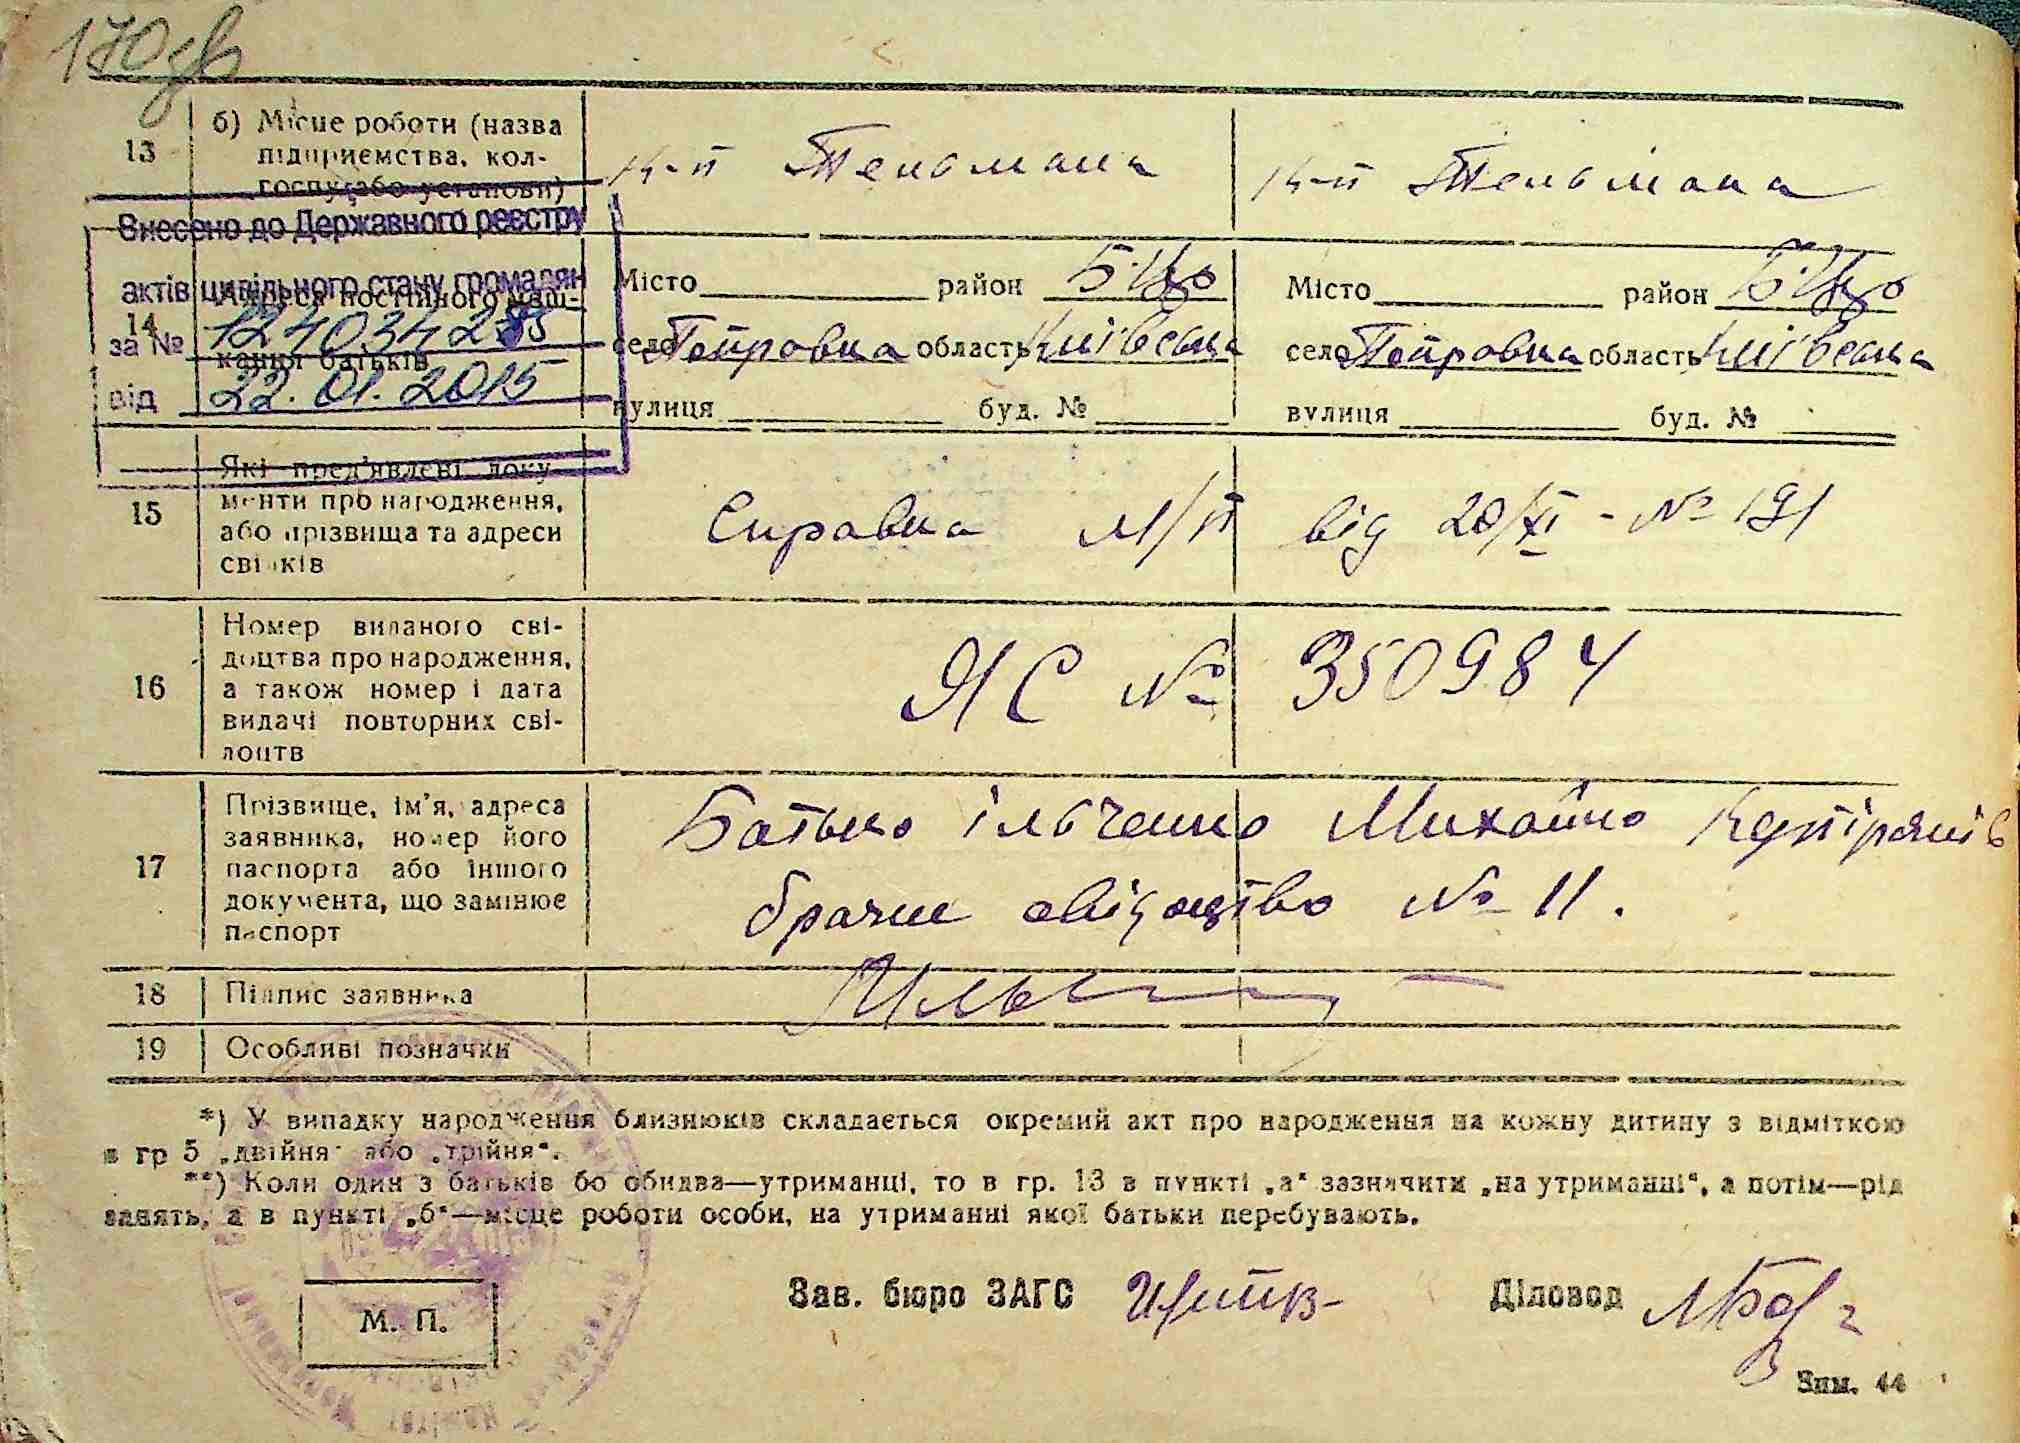 170 зв
13
б) Місце роботи (назва
підприємства, кол-
госпу або установи)
к-п Тельмана
к-п Тельмана
Внесено до Державного реєстру
актів цивільного стану громадян
за №
від 22.01.2015
14
Адреса постійного меш-
кання батьків
Місто район Б-Цер
село Петровка область Київська
вулиця буд. №
Місто район Б-Цер
село Петровка область Київська
вулиця буд. №
15
Які пред'явлені доку-
менти про народження,
або прізвища та адреси
свідків
Справка від 20/XI - № 191
16
Номер виданого сві-
доцтва про народження,
а також номер і дата
видачі повторних сві-
доцтв
ЯС № 350984
17
Прізвище, ім'я, адреса
заявника, номер його
паспорта або іншого
документа, що замінює
паспорт
Батько ільченко Михайло
брачне свідоцтво № 11.
18
Підпис заявника
19
Особливі позначки
*) У випадку народження близнюків складається окремий акт про народження на кожну дитину з відміткою
в гр 5 „двійня" або „трійня".
**) Коли один з батьків бо обидва—утриманці, то в гр. 13 в пункті „а" зазначити „на утриманні", а потім—рід
занять, а в пункті „б"—місце роботи особи, на утриманні якої батьки перебувають.
Зав. бюро ЗАГС
Діловод
М. П.
Зам. 44